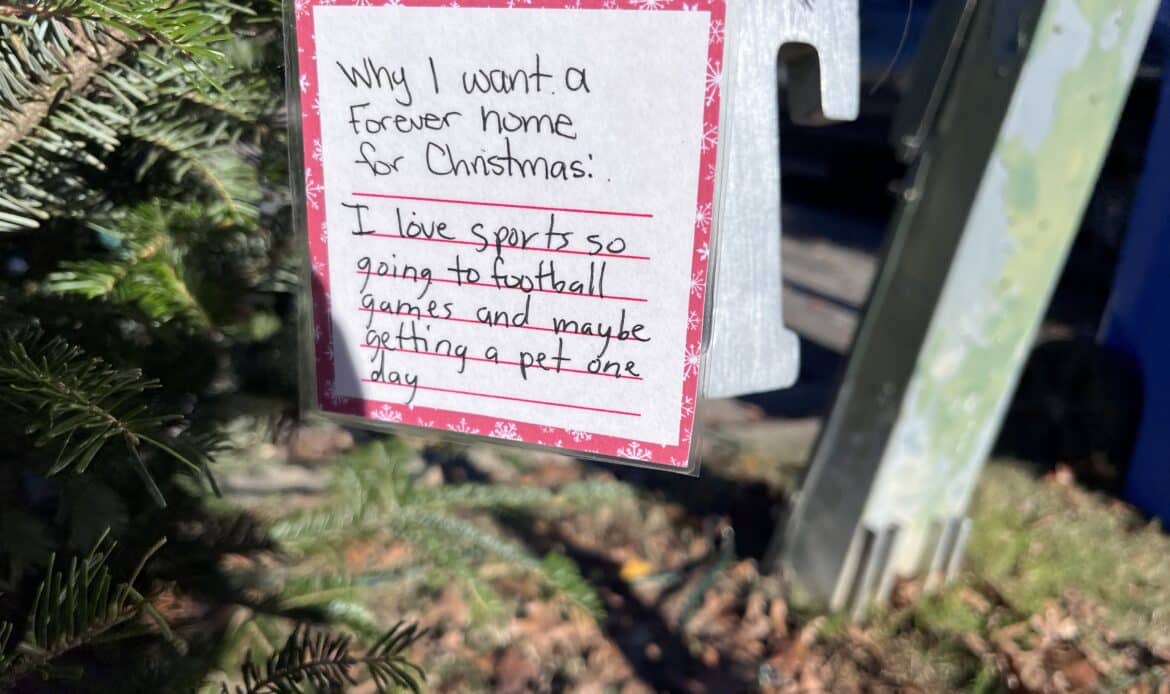 Why I want a
Forever home
for Christmas:
I love sports so
going to football
games and maybe
getting a pet one
day